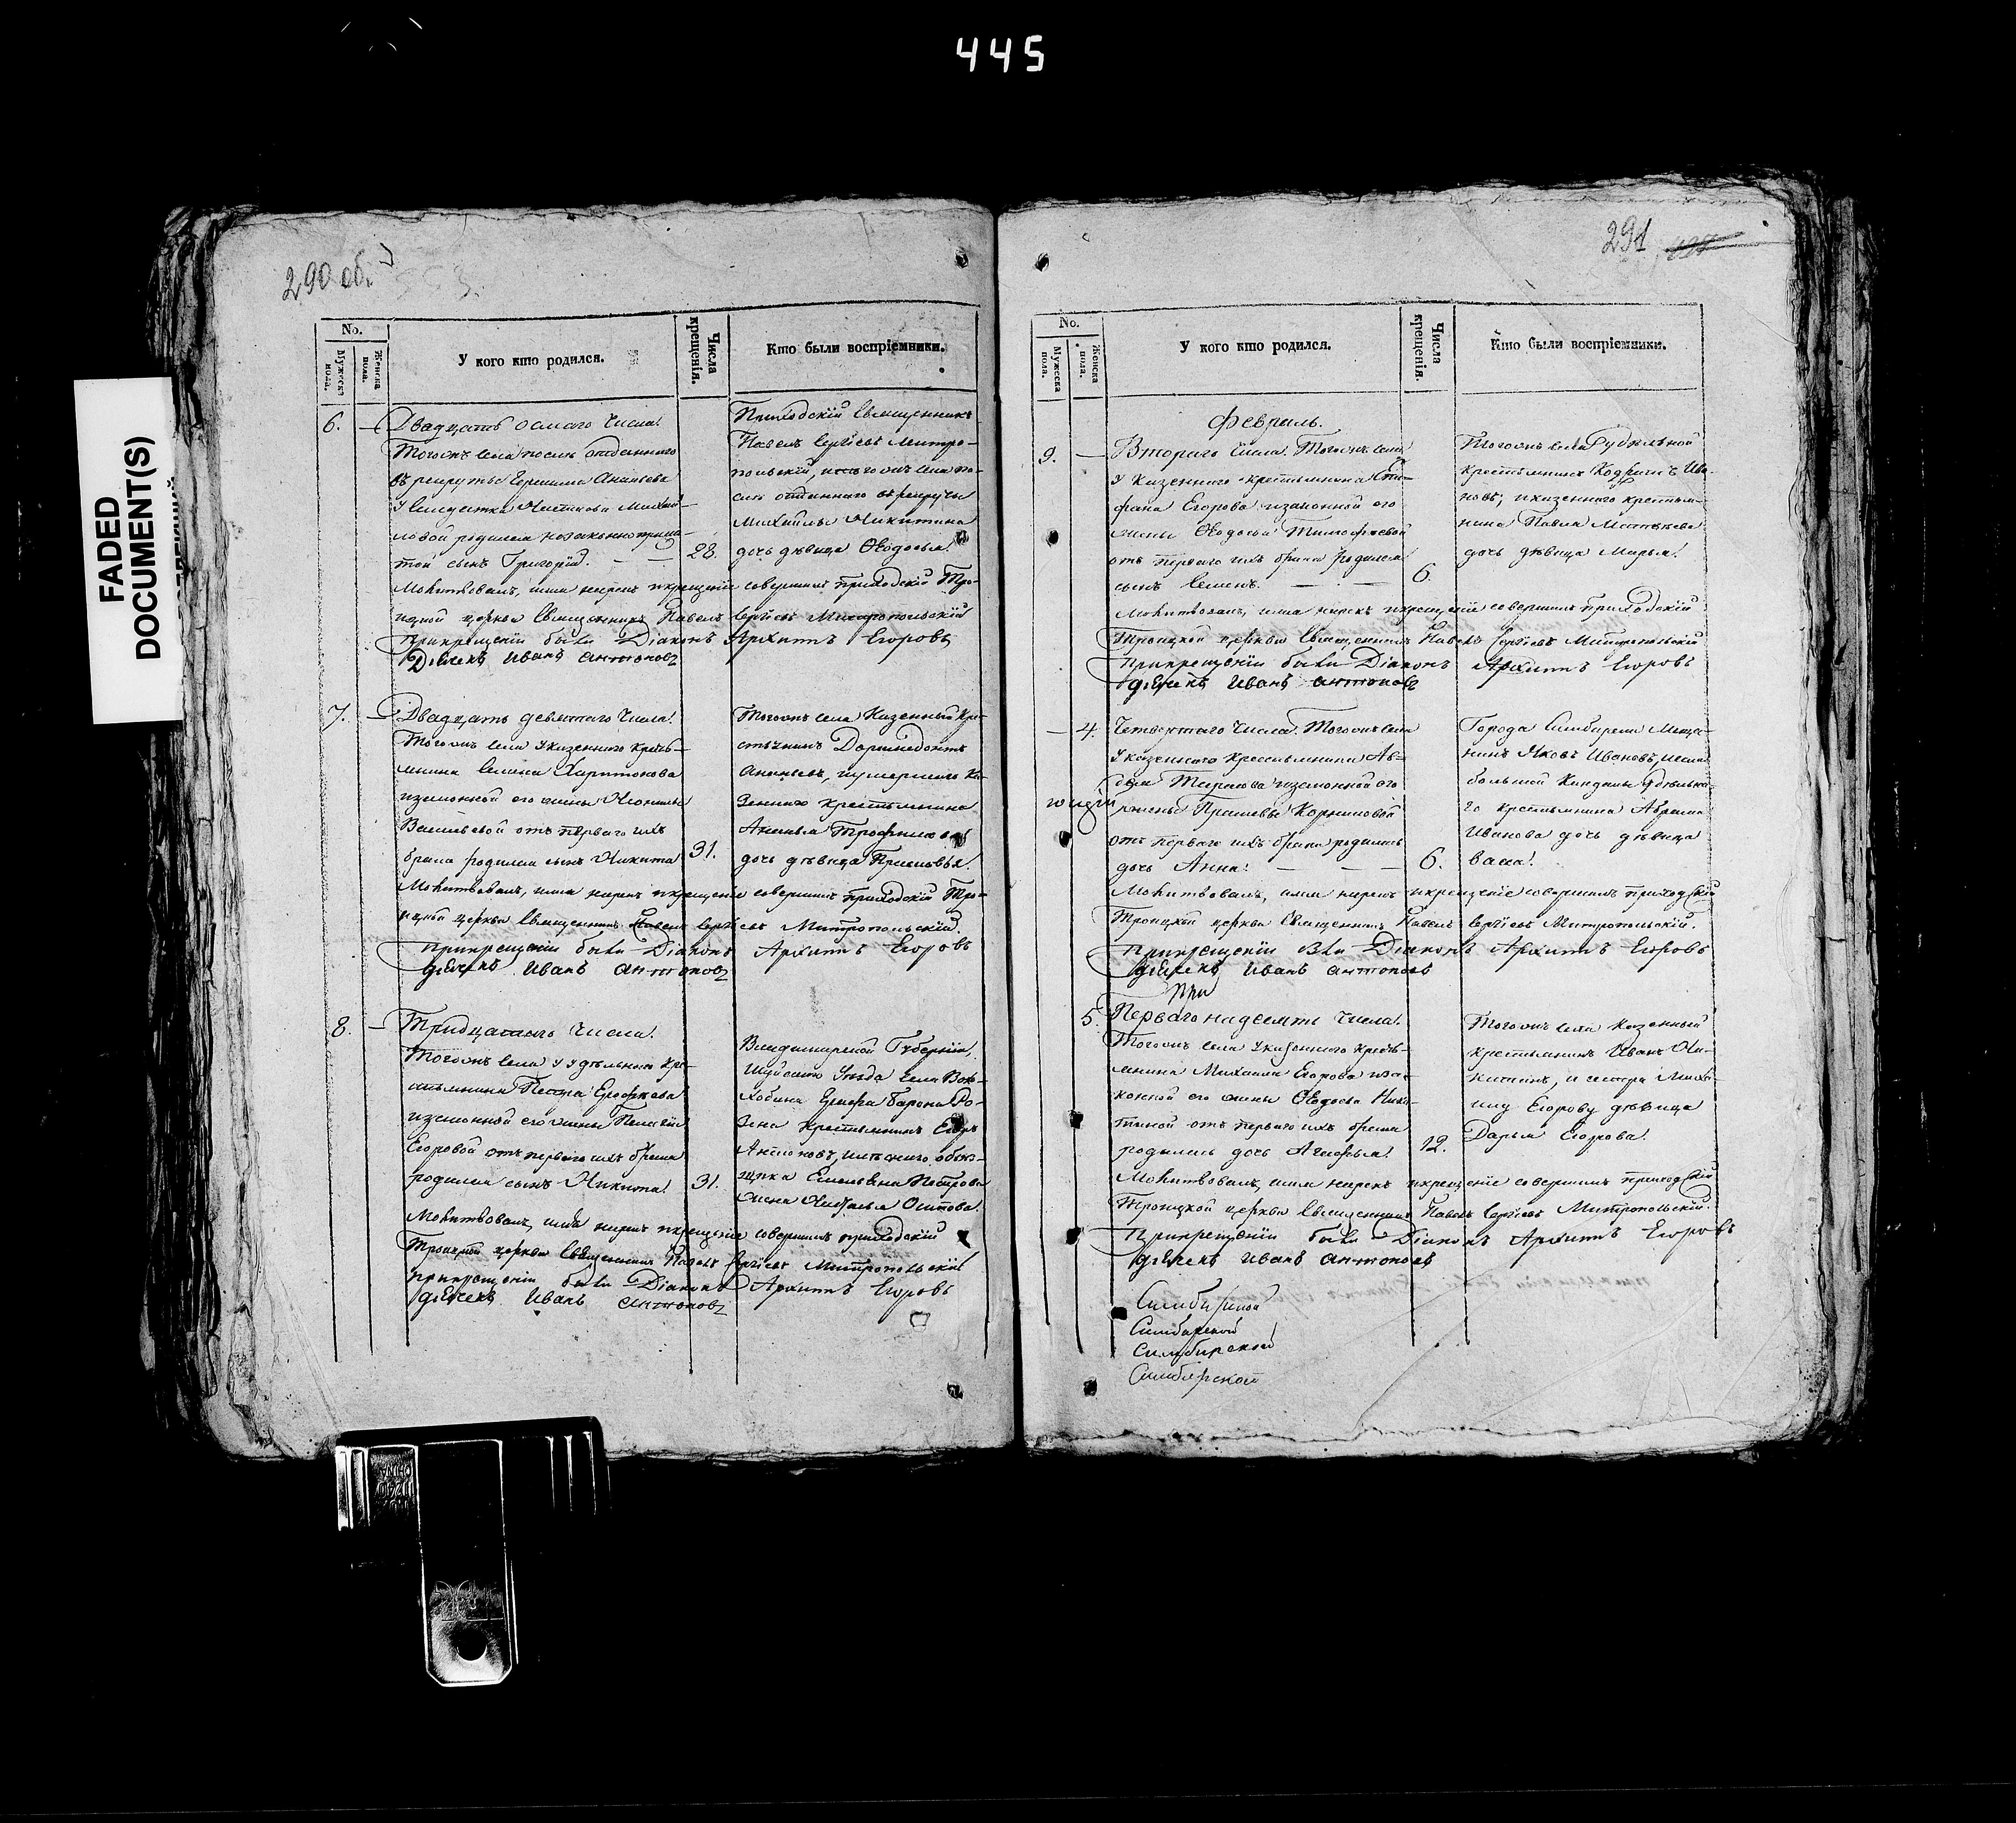 445
FADED
DOCUMENT(S)
290 об.
No.
Мужеска пола.
Женска пола.
У кого кто родился.
Числа крещенія.
Кто были воспріемники.
6. —
Двадцать осмаго Числа.
Тогожъ села после отданнаго
въ рекруты Ананьева
У солдатки Михай-
ловой родился незаконноприжи-
той сынъ Григорій. — —
28.
Приходскій Священникъ
Павелъ Сергіевъ Митро-
польскій, и тогожъ села по-
сле отданнаго въ рекруты
Михайлы Никитина
дочь дѣвица Ѳедосья.
Молитвовалъ, имя нарекъ и крещеніе совершилъ приходскій Тро-
ицкой церкви Священникъ Павелъ Сергіевъ Митропольскій
При крещеніи были Діаконъ Архипъ Егоровъ
Дьячекъ Иванъ Антоновъ
7. —
Двадцать девятаго Числа.
Тогожъ села У казеннаго кресть-
янина Семена Харитонова
и законной его жены
Васильевой отъ перваго ихъ
брака родился сынъ Никита
31.
Тогожъ села Казенный Кре-
стьянинъ
Ананьевъ, и умершаго Ка-
зеннаго крестьянина
Ананьи Трофимова
дочь дѣвица Прасковья.
Молитвовалъ, имя нарекъ и крещеніе совершилъ приходскій Тро-
ицкой церкви Священникъ Павелъ Сергіевъ Митропольскій.
При крещеніи были Діаконъ Архипъ Егоровъ
дьячекъ Иванъ Антоновъ
8. —
Тридцатаго Числа.
Тогожъ села У удѣльнаго кре-
стьянина Петра Ерофѣева
и законной его жены Пелагіи
Егоровой отъ перваго ихъ брака
родился сынъ Никита.
31.
Владимирской Губерніи,
Шуйскаго Уѣзда села
Барона Ро-
зена Крестьянинъ Егоръ
Антоновъ, и лѣснаго объѣз-
щика Емельяна Петрова
жена Наталья Осипова.
Молитвовалъ, имя нарекъ и крещеніе совершилъ приходскій
Троицкой церкви Священникъ Павелъ Сергіевъ Митропольскій
При крещеніи были Діаконъ Архипъ Егоровъ
дьячекъ Иванъ Антоновъ
291
No.
Мужеска пола.
Женска пола.
У кого кто родился.
Числа крещенія.
Кто были воспріемники.
Февраль.
9. —
Втораго Числа. Тогожъ села
У Казеннаго крестьянина Сте-
фана Егорова и законной его
жены Ѳедосьи Тимофѣевой
отъ перваго ихъ брака родился
сынъ Семенъ. — —
6.
Тогожъ села Удѣльной
крестьянинъ Ива-
новъ, и казеннаго крестья-
нина Павла Матвѣева
дочь дѣвица Марья.
Молитвовалъ, имя нарекъ и крещеніе совершилъ приходскій
Троицкой церкви Священникъ Павелъ Сергіевъ Митропольскій
При крещеніи были Діаконъ Архипъ Егоровъ
дьячекъ Иванъ Антоновъ
— 4.
Четвертаго Числа. Тогожъ села
У казеннаго крестьянина Ав-
дѣя и законной его
жены Корниловой
отъ перваго ихъ брака родилась
дочь Анна. — — —
6.
Города Симбирска Меща-
нинъ Яковъ Ивановъ, и села
большой Удѣльна-
го крестьянина Абрама
Иванова дочь дѣвица
Молитвовалъ, имя нарекъ и крещеніе совершилъ приходскій
Троицкой церкви Священникъ Павелъ Сергіевъ Митропольскій.
При крещеніи были Діаконъ Архипъ Егоровъ
дьячекъ Иванъ Антоновъ
При
5.
Перваго надесять Числа.
Тогожъ села У казеннаго кресть-
янина Михаила Егорова и за-
конной его жены Ѳедосьи Ники-
тиной отъ перваго ихъ брака
родилась дочь Агафья.
12.
Тогожъ села Казенный
крестьянинъ Иванъ Ни-
китинъ, и сестра Миха-
илу Егорову дѣвица
Дарья Егорова.
Молитвовалъ, имя нарекъ и крещеніе совершилъ приходскій
Троицкой церкви Священникъ Павелъ Сергіевъ Митропольскій.
При крещеніи были Діаконъ Архипъ Егоровъ
дьячекъ Иванъ Антоновъ
Симбирской
Симбирской
Симбирской
Симбирской